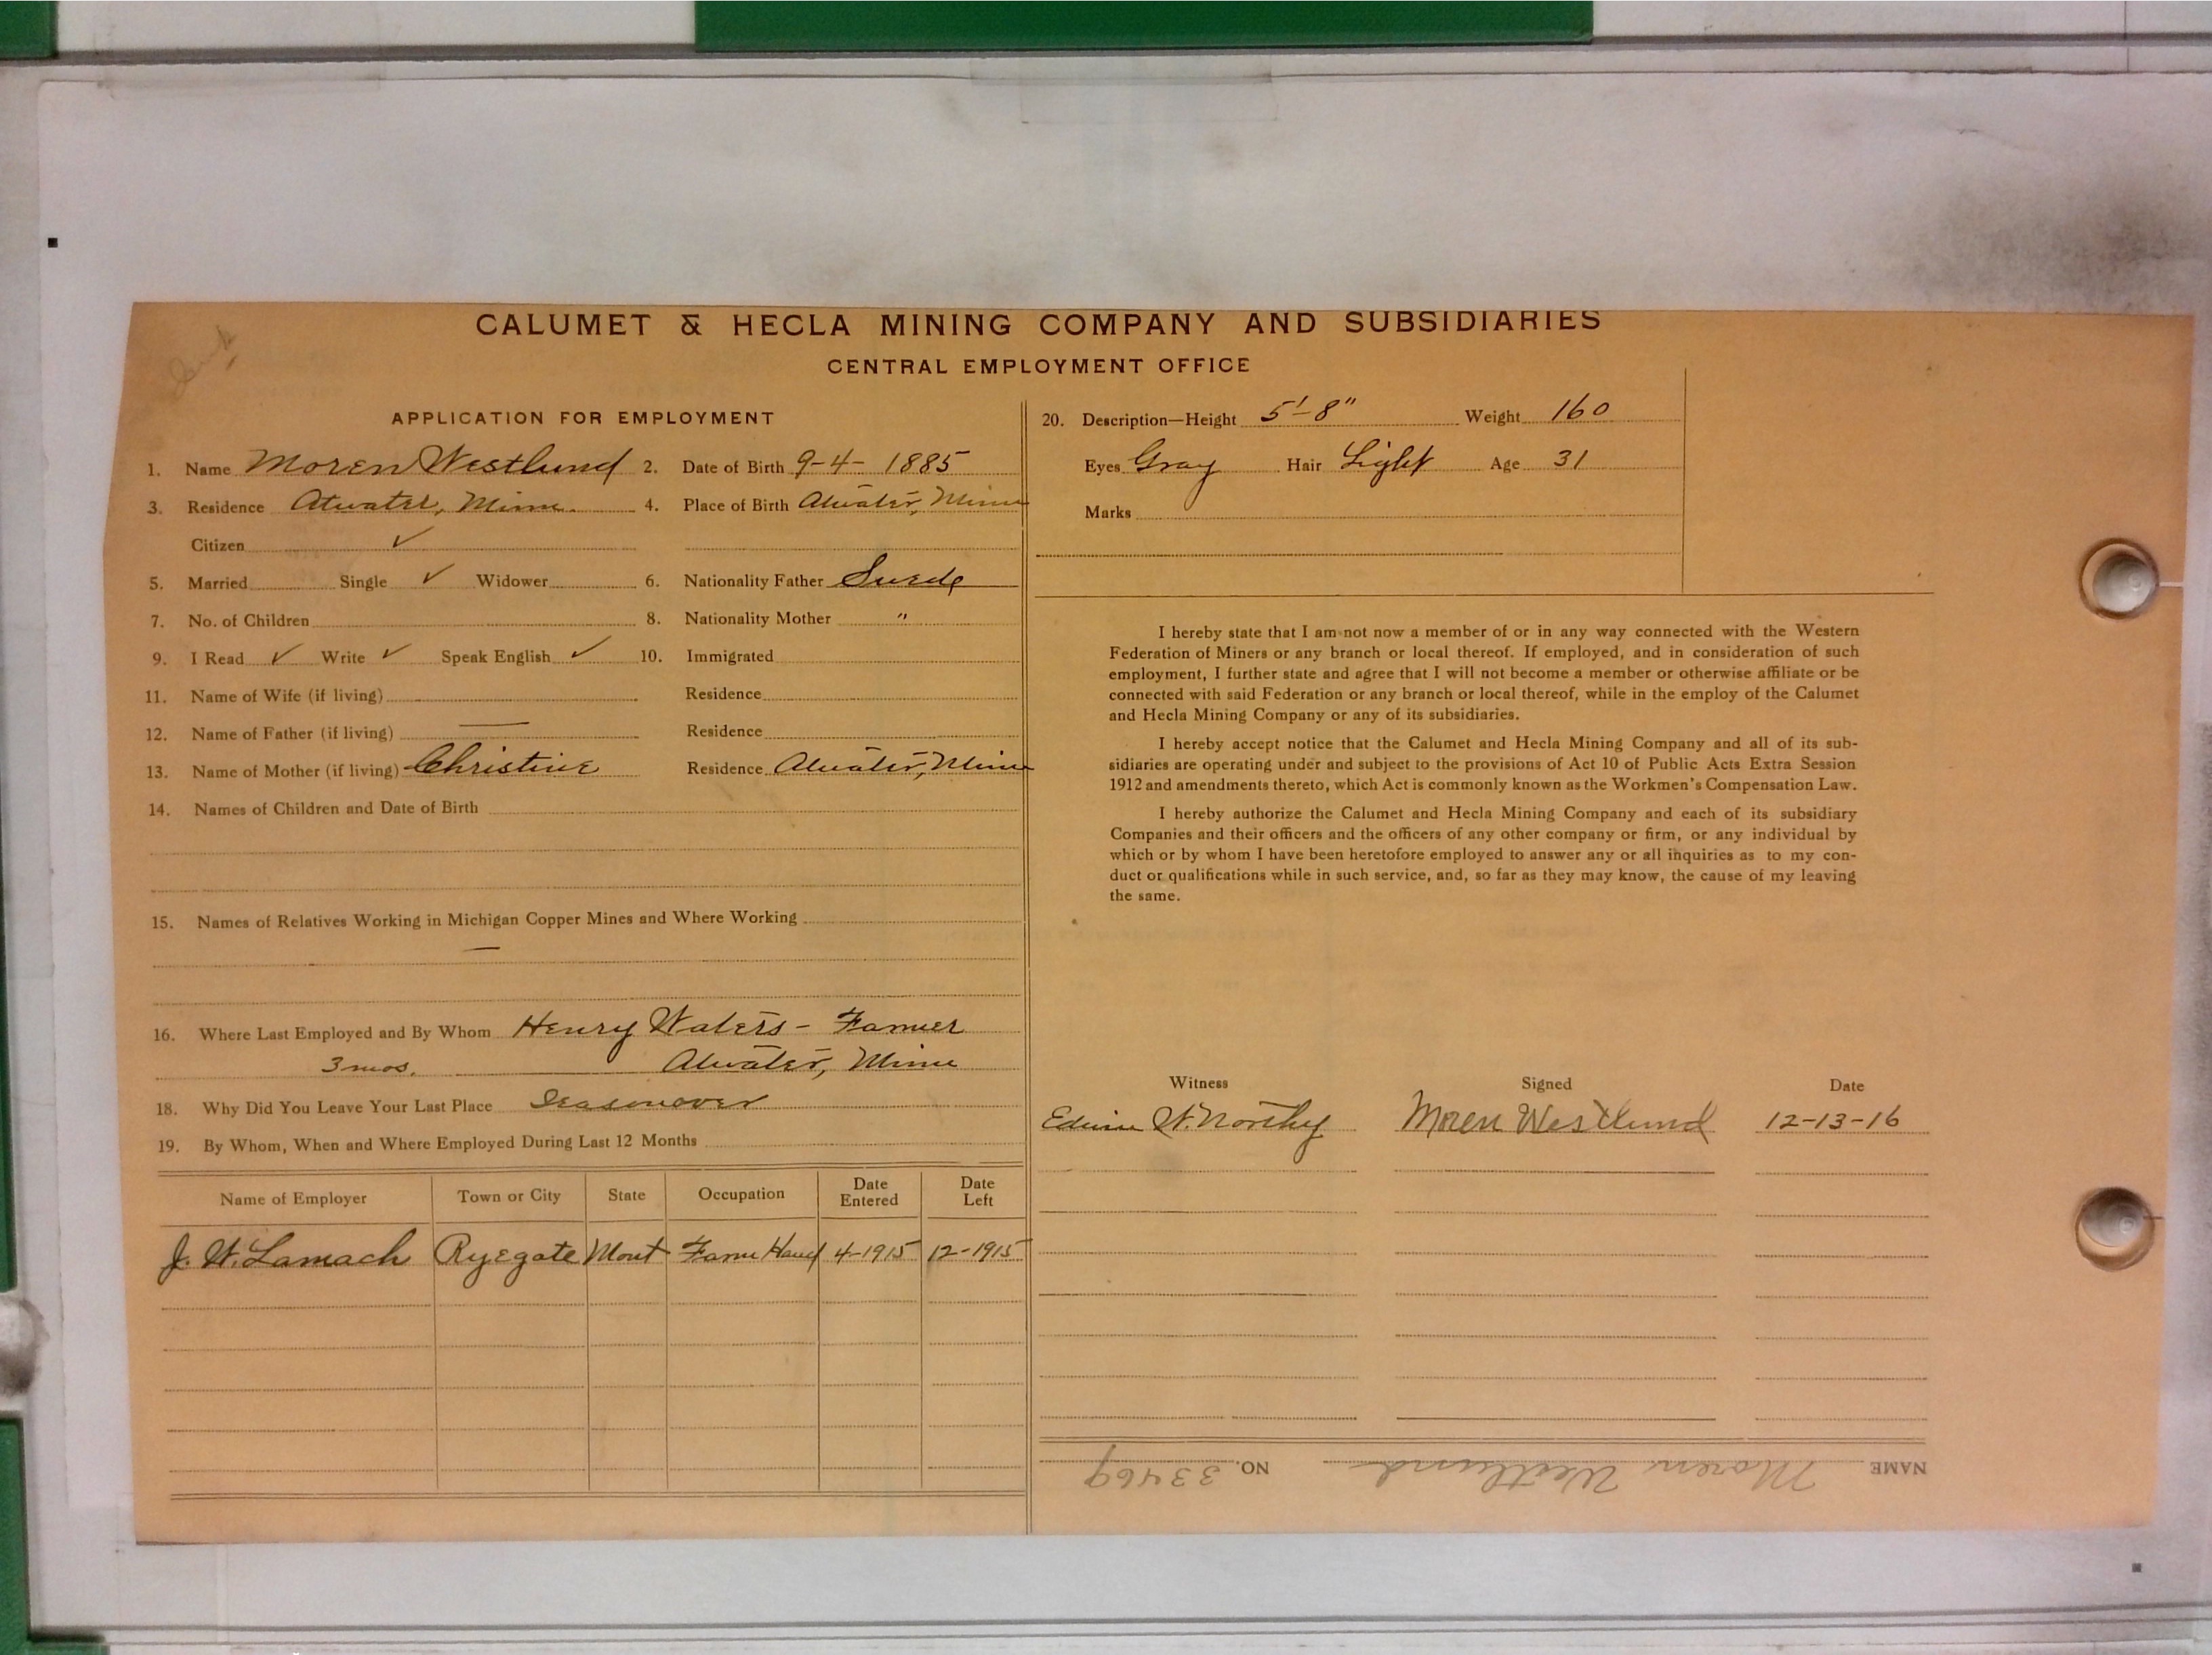 CALUMET & HECLA MINING COMPANY AND SUBSIDIARIES
CENTRAL EMPLOYMENT OFFICE
APPLICATION FOR EMPLOYMENT
1. Name Moren Westlund 2. Date of Birth 9-4-1885
3. Residence Atwater, Minn. 4. Place of Birth Atwater, Minn
Citizen ✓
5. Married Single ✓ Widower 6. Nationality Father Swede
7. No. of Children 8. Nationality Mother "
9. I Read ✓ Write ✓ Speak English ✓ 10. Immigrated
11. Name of Wife (if living) Residence
12. Name of Father (if living) — Residence
13. Name of Mother (if living) Christine Residence Atwater, Minn
14. Names of Children and Date of Birth
15. Names of Relatives Working in Michigan Copper Mines and Where Working
—
16. Where Last Employed and By Whom Henry Waters - Farmer
3 mos. Atwater, Minn
18. Why Did You Leave Your Last Place Season over
19. By Whom, When and Where Employed During Last 12 Months
Name of Employer Town or City State Occupation Date Entered Date Left
J. W. Lamach Ryegate Mont Farm Hand 4-1915 12-1915
20. Description—Height 5'-8" Weight 160
Eyes Gray Hair Light Age 31
Marks
I hereby state that I am not now a member of or in any way connected with the Western
Federation of Miners or any branch or local thereof. If employed, and in consideration of such
employment, I further state and agree that I will not become a member or otherwise affiliate or be
connected with said Federation or any branch or local thereof, while in the employ of the Calumet
and Hecla Mining Company or any of its subsidiaries.
I hereby accept notice that the Calumet and Hecla Mining Company and all of its sub-
sidiaries are operating under and subject to the provisions of Act 10 of Public Acts Extra Session
1912 and amendments thereto, which Act is commonly known as the Workmen's Compensation Law.
I hereby authorize the Calumet and Hecla Mining Company and each of its subsidiary
Companies and their officers and the officers of any other company or firm, or any individual by
which or by whom I have been heretofore employed to answer any or all inquiries as to my con-
duct or qualifications while in such service, and, so far as they may know, the cause of my leaving
the same.
Witness Signed Date
Edwin W. Northy Moren Westlund 12-13-16
NAME Moren Westlund NO. 33469